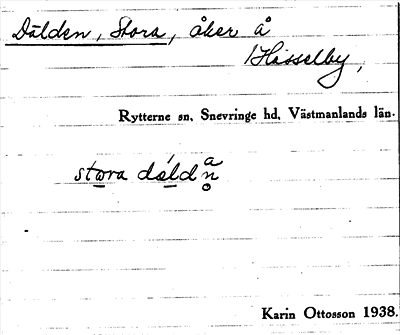 Dälden, Stora, åker å
1 Hässelby,
Rytterne sn, Snevringe hd, Västmanlands län.
stora däldån
Karin Ottosson 1938.